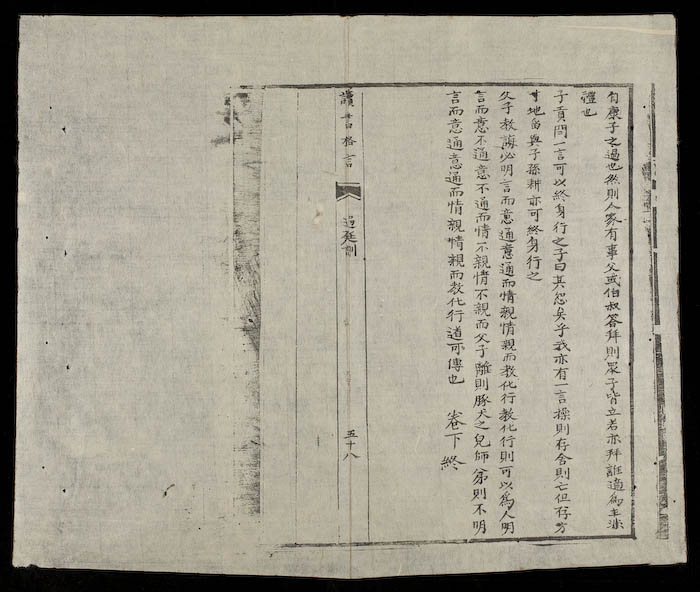 自康子之過也然則人家有事父或伯叔答拜則眾子皆立者亦拜誰適為主非
禮也
子貢問一言可以終身行之子曰其恕矣乎我亦有一言操則存舍則亡但存方
寸地留與子孫耕亦可終身行之
父子教誨必明言而意通意通而情親情親而教化行教化行則可以為人明
言而意不通意不通而情不親情不親而父子離則豚犬之兒師弟則不明
言而意通意通而情親情親而教化行道可傳也 卷下終
讀書格言 過庭訓 五十八